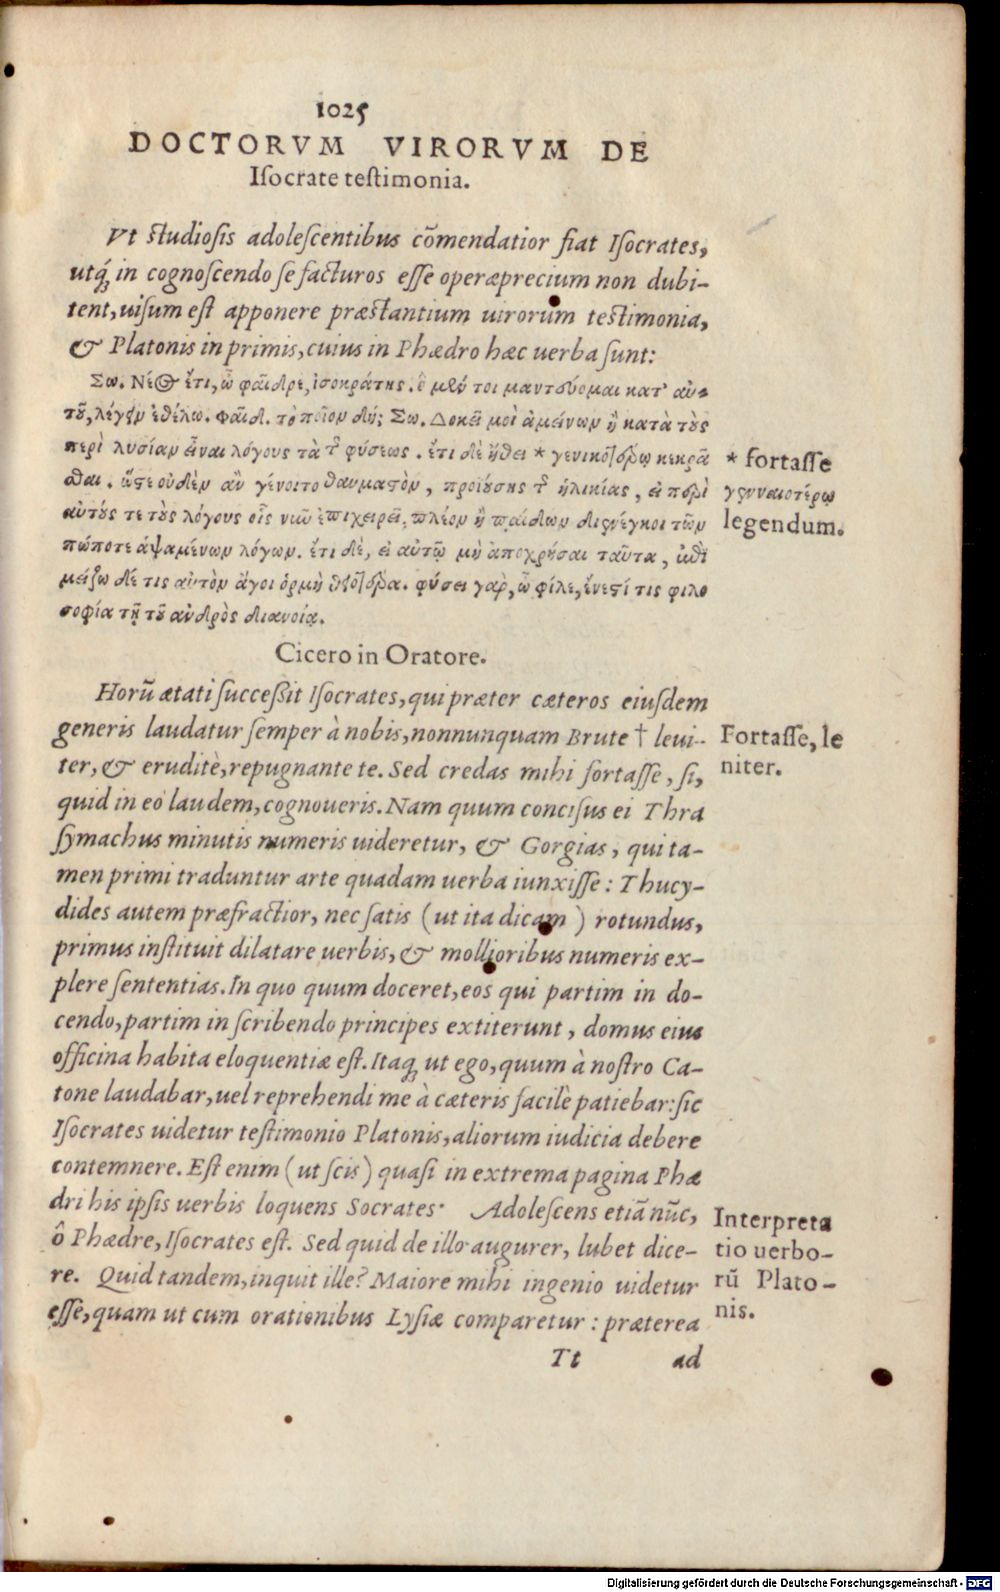 1025
DOCTORVM VIRORVM DE
Iſocrate teſtimonia.
Vt ſtudioſis adoleſcentibus cōmendatior fiat Iſocrates,
utq́ꝫ in cognoſcendo ſe facturos eſſe operæprecium non dubi-
tent, uiſum eſt apponere præſtantium uirorum teſtimonia,
& Platonis in primis, cuius in Phædro hæc uerba ſunt:
Σω. Νέος ἔτι, ὦ φαῖδρε, ἰσοκράτης. ὃ μὲν τοι μαντεύομαι κατ' αὐ-
τοῦ, λέγειν ἐθέλω. Φαῖδ. τὸ ποῖον δή; Σω. Δοκεῖ μοὶ ἀμείνων ἢ κατὰ τοὺς
περὶ λυσίαν εἶναι λόγους τὰ τῆς φύσεως. ἔτι δὲ ἤθει * γενικωτέρῳ κεκρᾶ
σθαι. ὥστε οὐδὲν ἂν γένοιτο θαυμαστὸν, προϊούσης τῆς ἡλικίας, εἰ περὶ
αὐτούς τε τοὺς λόγους οἷς νῦν ἐπιχειρεῖ, πλέον ἢ παίδων διενέγκοι τῶν
πώποτε ἁψαμένων λόγων. ἔτι δὲ, εἰ αὐτῷ μὴ ἀποχρήσαι ταῦτα, ἐπὶ
μείζω δέ τις αὐτὸν ἄγοι ὁρμὴ θειοτέρα. φύσει γαρ, ὦ φίλε, ἔνεστί τις φιλο
σοφία τῇ τοῦ ἀνδρὸς διανοίᾳ.
* fortaſſe
γενναιοτέρῳ
legendum.
Cicero in Oratore.
Horū ætati ſucceßit Iſocrates, qui præter cæteros eiuſdem
generis laudatur ſemper à nobis, nonnunquam Brute † leui-
ter, & eruditè, repugnante te. Sed credas mihi fortaſſe, ſi,
quid in eo laudem, cognoueris. Nam quum conciſus ei Thra
ſymachus minutis numeris uideretur, & Gorgias, qui ta-
men primi traduntur arte quadam uerba iunxiſſe: Thucy-
dides autem præfractior, nec ſatis (ut ita dicam) rotundus,
primus inſtituit dilatare uerbis, & mollioribus numeris ex-
plere ſententias. In quo quum doceret, eos qui partim in do-
cendo, partim in ſcribendo principes extiterunt, domus eius
officina habita eloquentiæ eſt. Itaqꝫ ut ego, quum à noſtro Ca-
tone laudabar, uel reprehendi me à cæteris facilè patiebar: ſic
Iſocrates uidetur teſtimonio Platonis, aliorum iudicia debere
contemnere. Eſt enim (ut ſcis) quaſi in extrema pagina Phæ
dri his ipſis uerbis loquens Socrates. Adoleſcens etiā nūc,
ô Phædre, Iſocrates eſt. Sed quid de illo augurer, lubet dice-
re. Quid tandem, inquit ille? Maiore mihi ingenio uidetur
eſſe, quam ut cum orationibus Lyſiæ comparetur: præterea
Fortaſſe, le
niter.
Interpreta
tio uerbo-
rū Plato-
nis.
Tt ad
Digitalisierung gefördert durch die Deutsche Forschungsgemeinschaft - DFG